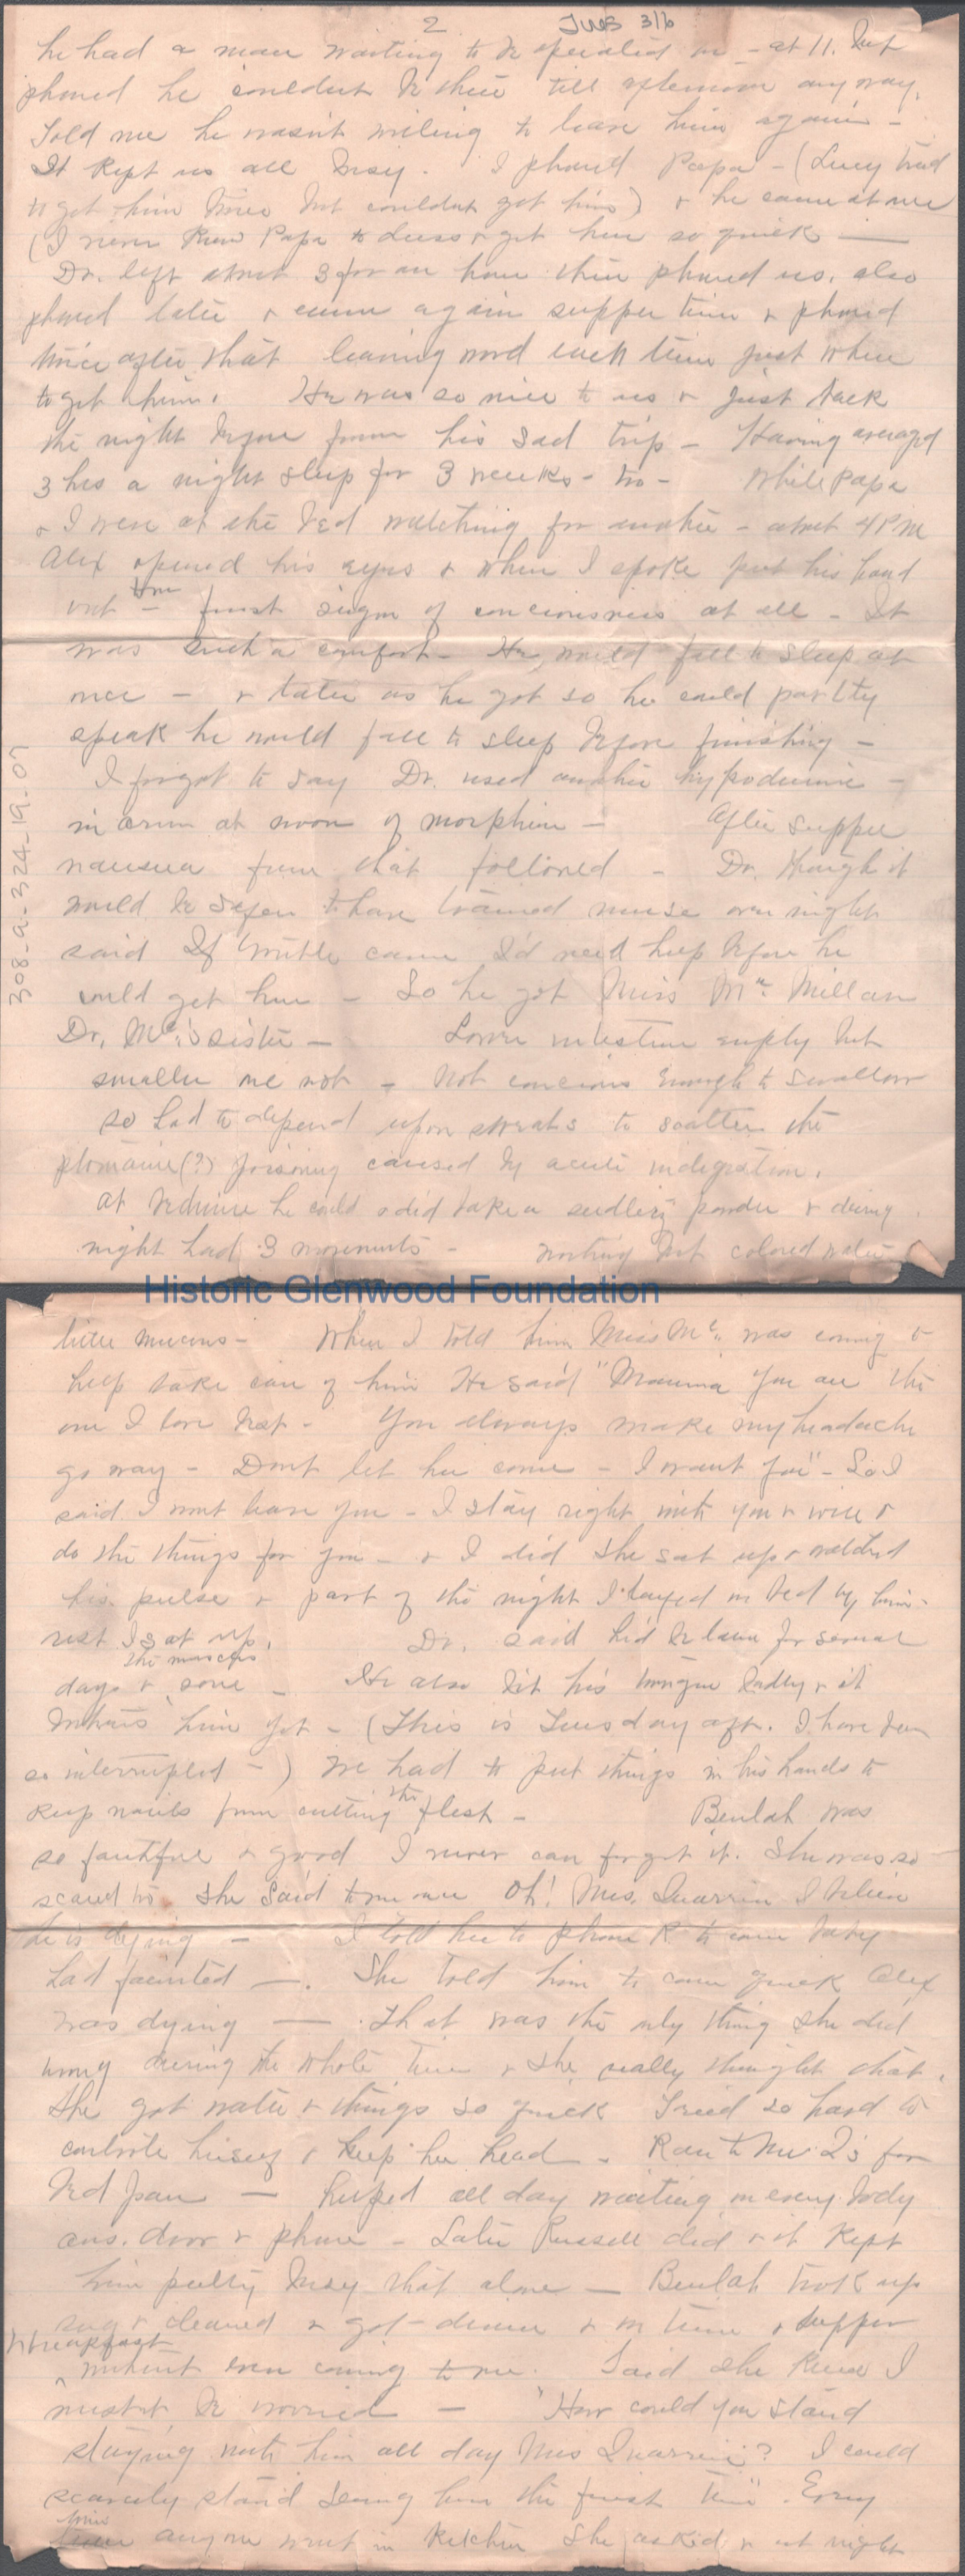 2 Jwb 316
he had a man waiting to be operated on - at 11. but
phoned he couldn't be there till afternoon anyway.
Told me he wasn't willing to leave him again -
It kept us all busy. I phoned Papa - (Lucy tried
to get him twice but couldn't get him) & he came at once
(I never knew Papa to dress & get here so quick —
Dr. left about 3 for an hour then phoned us. also
phoned later & came again supper time & phoned
twice after that leaving word each time just where
to get him. He was so nice to us & just back
the night before from his sad trip - Having averaged
3 hrs a night sleep for 3 weeks - too - While Papa
& I were at the bed watching for another - about 4 P M
Alex opened his eyes & when I spoke put his hand
out - first sign of conciousness at all - It
was such a comfort - He would fall to sleep at
once - & later as he got so he could partly
speak he would fall to sleep before finishing -
I forgot to say Dr. used another hypodermic -
in arm at noon of morphine - After supper
nausea from that followed - Dr. thought it
would be safer to have trained nurse over night
said If trouble came I'd need help before he
could get here - So he got Miss Mc. Millan
Dr. Mc.'s sister - Lower intestine empty but
smaller one not - Not concious enough to swallow
so had to depend upon sweats to scatter the
ptomaine(?) poisoning caused by acute indigestion.
At bedtime he could & did take a seidlitz powder & during
night had 3 movements - nothing but colored water &
Historic Glenwood Foundation
little mucous - When I told him Miss Mc. was coming to
help take care of him He said "Mamma you are the
one I love best - You always make my headache
go way - Don't let her come - I want you" - So I
said I won't leave you - I stay right with you & will &
do the things for you - & I did She sat up & watched
his pulse & part of the night I stayed on bed by him -
rest I sat up. Dr. said he'd be lame for several
days & the muscles sore - He also bit his tongue badly & it
bothers him yet - (This is Tuesday aft. I have been
so interrupted -) We had to put things in his hands to
keep nails from cutting the flesh - Beulah was
so faithful & good I never can forget it. She was so
scared too She said to me once Oh! Mrs. Quarrie I believe
he is dying - I told her to phone R to come baby
had fainted —. She told him to come quick Alex
was dying — That was the only thing she did
wrong during the whole time & she really thought that.
She got water & things so quick Tried so hard to
controle herself & keep her head - Ran to Mc Q's for
bed pan — helped all day waiting on every body
ans. door & phone - Later Russell did & it kept
him pretty busy that alone — Beulah took up
rug & cleaned & got dinner & on time & supper
& breakfast
without even coming to me. Said she knew I
mustn't be worried — "How could you stand
staying with him all day Mrs Quarrie? I could
scarcely stand seeing him the first time". Every
time anyone went in kitchen she asked & at night